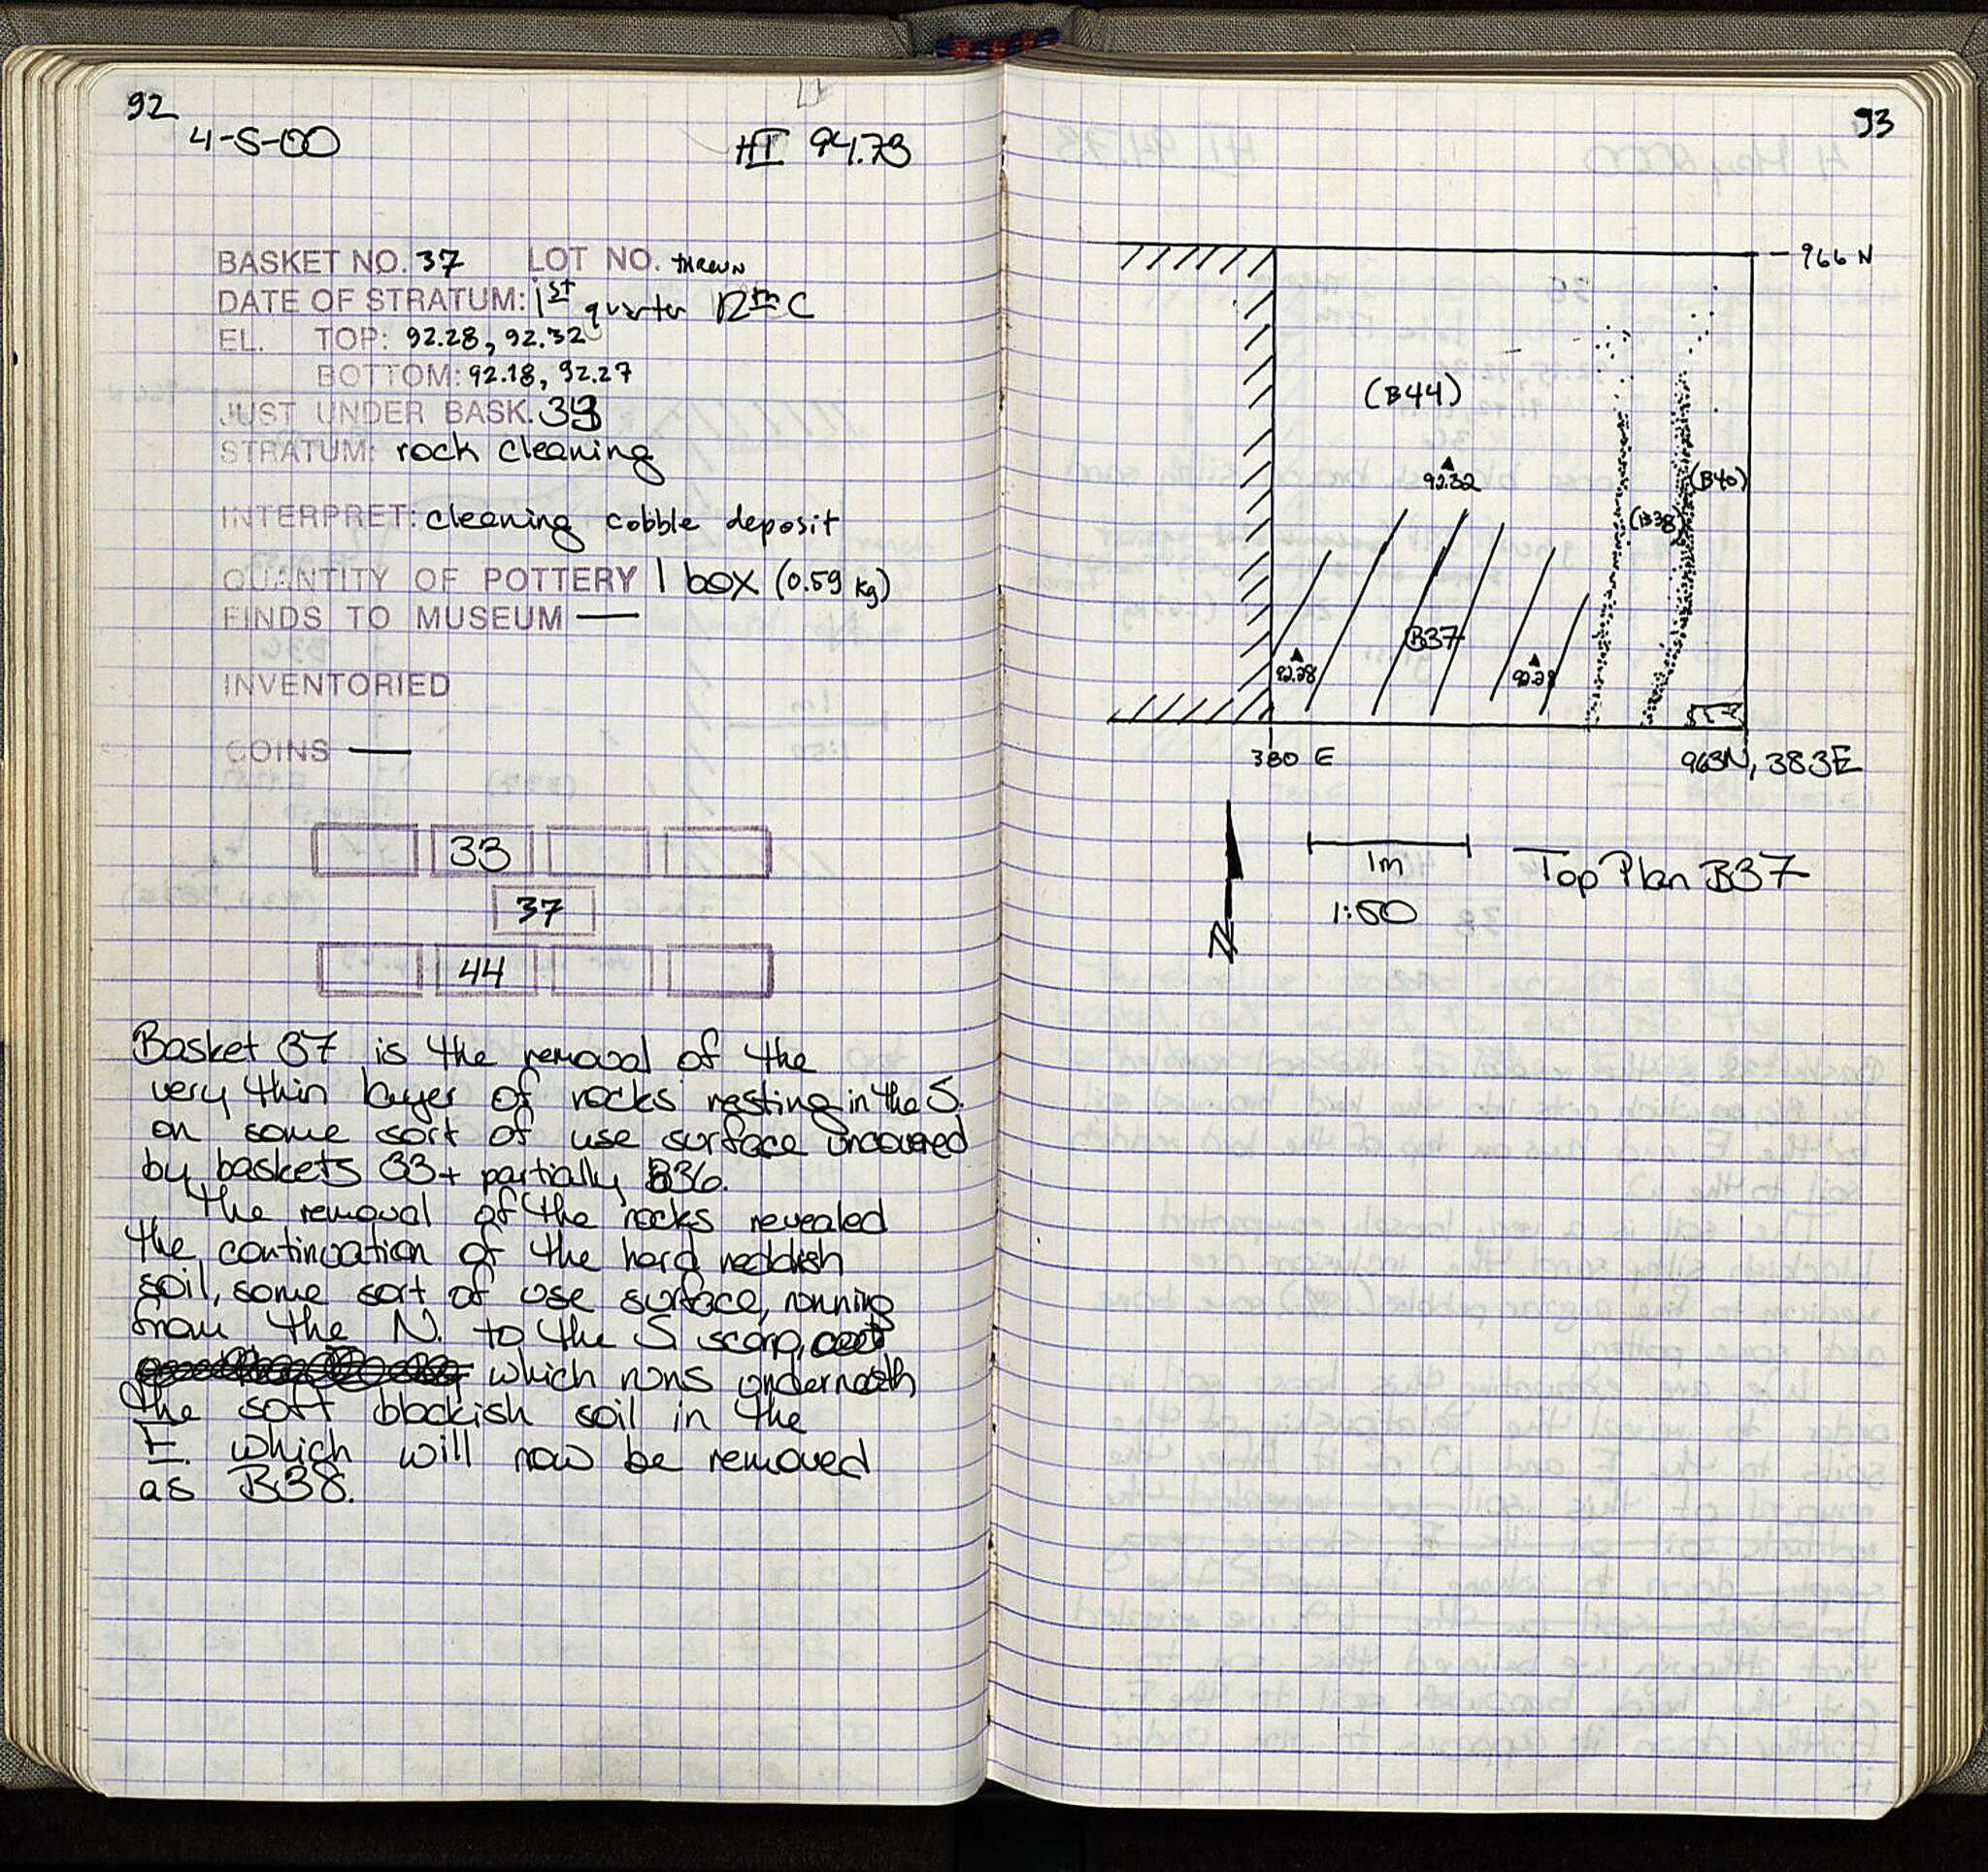 92
4-5-00 HI 94.73
BASKET NO. 37 LOT NO. thrown
DATE OF STRATUM: 1st quarter 12th C
EL. TOP: 92.28, 92.32
BOTTOM: 92.18, 92.27
JUST UNDER BASK. 33
STRATUM: rock cleaning
INTERPRET: cleaning cobble deposit
QUANTITY OF POTTERY 1 box (0.59 kg)
FINDS TO MUSEUM —
INVENTORIED
COINS —
33
37
44
Basket 37 is the removal of the
very thin layer of rocks resting in the S.
on some sort of use surface uncovered
by baskets 33 + partially B36.
The removal of the rocks revealed
the continuation of the hard reddish
soil, some sort of use surface, running
from the N. to the S scarp,
which runs underneath
the soft blackish soil in the
E. which will now be removed
as B38.
93
966 N
(B44)
92.32
(B40)
(B38)
B37
92.28
92.28
380 E
963N, 383E
1m
1:50
Top Plan B37
N